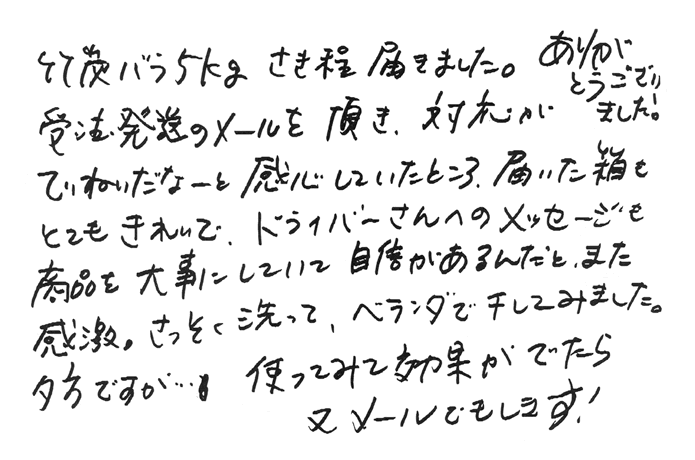 竹炭バラ5kg さき程 届きました。 ありがとうございました!
受注発送のメールを 頂き、対応が
ていねいだなーと 感心していたところ、届いた箱も
とても きれいで、ドライバーさんへのメッセージも
商品を 大事にしていて 自信があるんだと、また
感激。さっそく 洗って、ベランダで 干してみました。
夕方ですが… 使ってみて 効果が でたら
又 メールでもします!